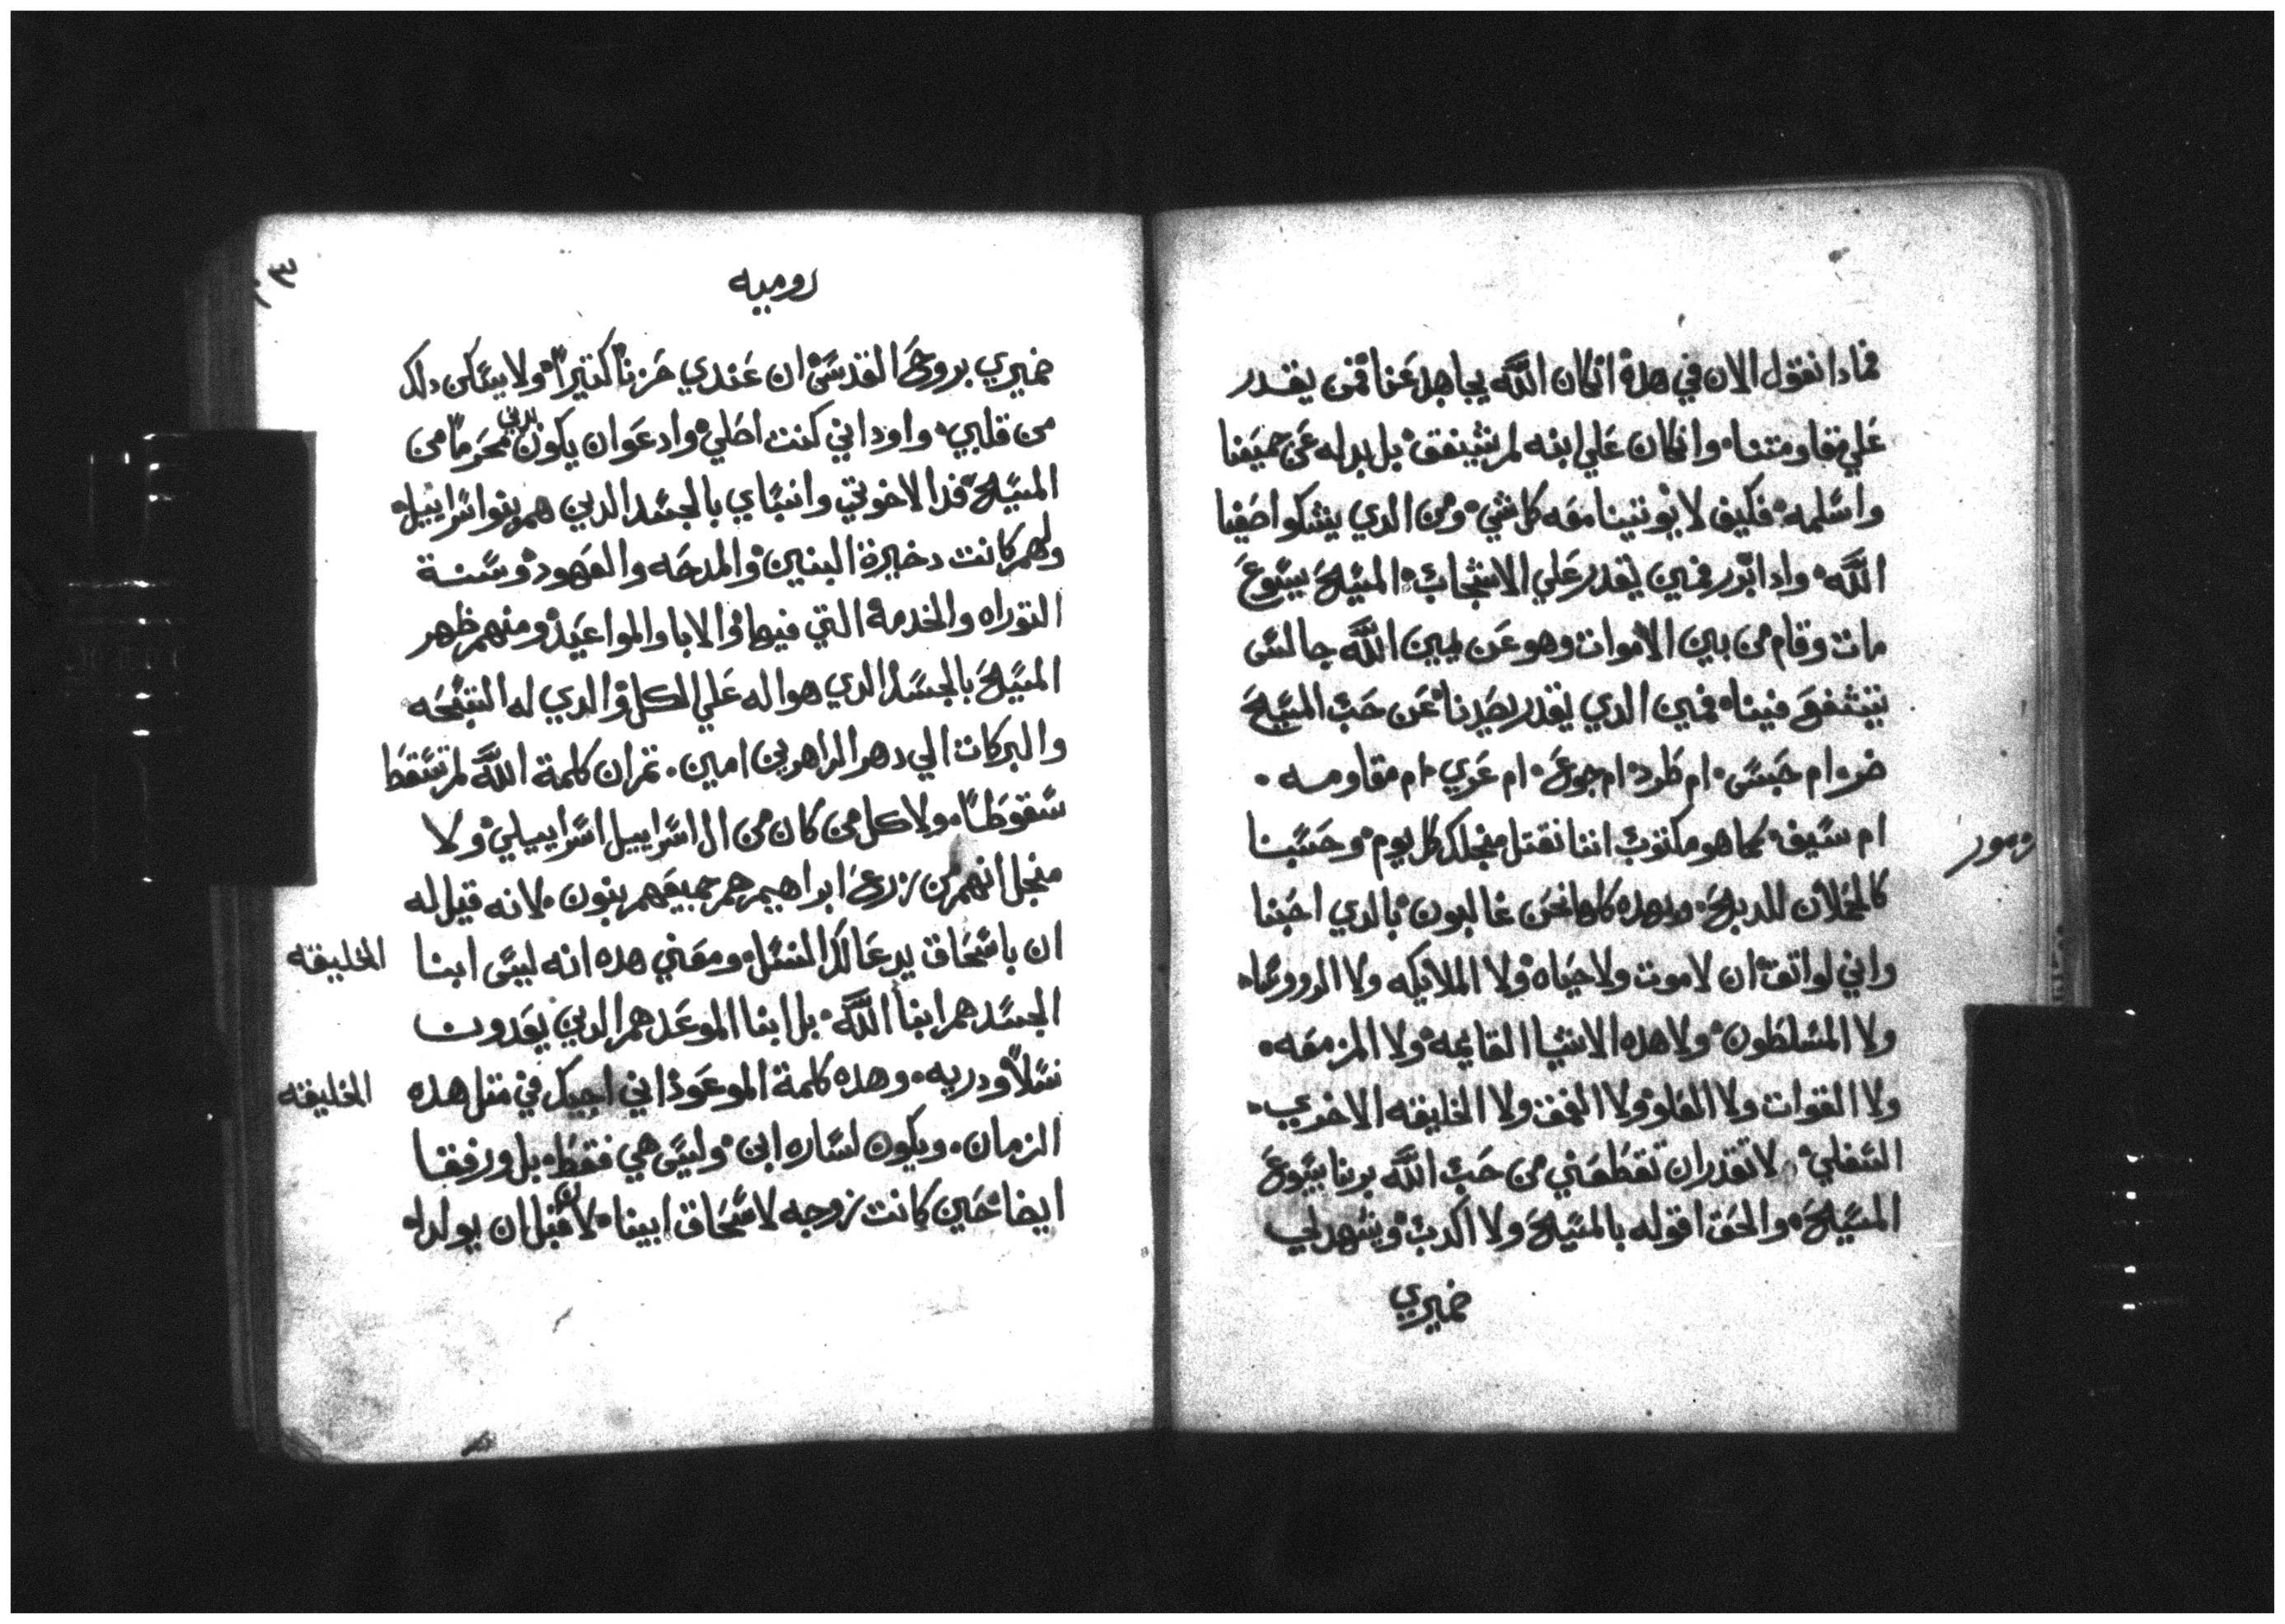 فمادا نقول الان في هده انكان الله يجاهد عنا فمن يقدر
علي مقاومتنا وانكان علي ابنه لم يشفق بل بدله عن جميعنا
واسلمه فكيف لا يوتينا معه كل شي ومن الدي يشكوا اصفيا
الله وادا برر فمين يقدر علي الاشجاب المسيح يسوع
مات وقام من بين الاموات وهو عن يمين الله جالس
يتشفع فينا فمين الدي يقدر يصدنا عن حب المسيح
ضر ام حبس ام طرد ام جوع ام عري ام مقاومه
ام سيف كما هو مكتوب اننا نقتل منجلك كل يوم وحسبنا
زمور
كالحملان للدبح وبهده كلها نحن غالبون بالدي احبنا
واني لواتق ان لا موت ولا حياه ولا الملايكه ولا الرووسا
ولا المسلطون ولا هده الاشيا القايمه ولا المزمعه
ولا القوات ولا العلو ولا العمق ولا الخليقه الاخري
السفلي لا تقدر ان تقطعني من حب الله بربنا يسوع
المسيح والحق اقوله بالمسيح ولا اكدب ويشهد لي
ضميري
٣٠
روميه
ضميري بروح القدس ان عندي حزنا كتيرا ولا يسكن دلك
من قلبي واود اني كنت اصلي وادعوا ان يكون بدني محروما من
المسيح فدا لاخوتي وانسباي بالجسد الدين هم بنوا اسراييل
ولهم كانت دخيرة البنين والمدحه والعهود وسنة
التوراه والخدمه التي فيها والابا والمواعيد ومنهم ظهر
المسيح بالجسد الدي هو اله علي الكل والدي له التسبحه
والبركات الي دهر الداهرين امين تم ان كلمة الله لم تسقط
سقوطا ولا كل من كان من ال اسراييل اسراييلي ولا
منجل انهم من زرع ابراهيم هم جميعهم بنون لانه قيل له
ان باسحاق يدعا لك النسل ومعني هده انه ليس ابنا
الخليقه
الجسد هم ابنا الله بل ابنا الموعد هم الدين يعدون
نسلا ودريه وهده كلمة الموعود اني اجيك في متل هده
الخليقه
الزمان ويكون لساره ابن وليس هي فقط بل ورفقا
ايضا حين كانت زوجه لاسحاق ابينا لان قبل ان يولدا